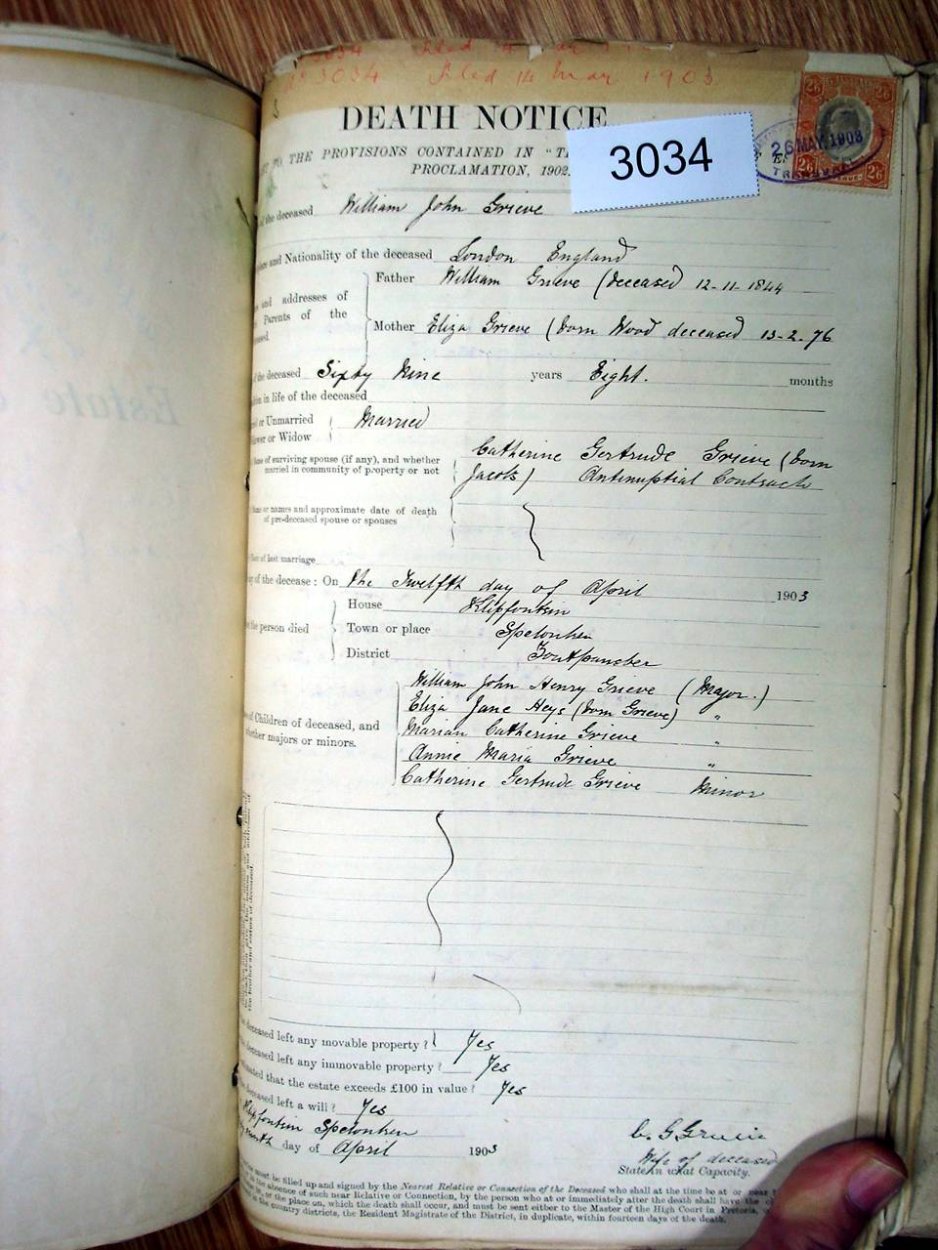 3034 Filed 14 Mar 1903
DEATH NOTICE
TO THE PROVISIONS CONTAINED IN "T
PROCLAMATION, 1902.
3034
2/6 2/6
26 MAY. 1903
TRANSVAAL
2/6 2/6
of the deceased William John Grieve
and Nationality of the deceased London England
and addresses of Parents of the Father William Grieve (deceased 12-11-1844
Mother Eliza Grieve (born Wood deceased 13-2-76
of the deceased Sixty Nine years Eight. months
in life of the deceased
or Unmarried
or Widow Married
Name of surviving spouse (if any), and whether Catherine Gertrude Grieve (born
married in community of property or not Jacobs) Antinuptial Contract
or names and approximate date of death
of pre-deceased spouse or spouses
of last marriage
of the decease: On the Twelfth day of April 1903
House Klipfontein
the person died Town or place Spelonken
District Zoutpansber
William John Henry Grieve (Major.)
Eliza Jane Heys (born Grieve) "
of Children of deceased, and Marian Catherine Grieve "
whether majors or minors. Annie Maria Grieve "
Catherine Gertrude Grieve Minor
deceased left any movable property? Yes
deceased left any immovable property? Yes
that the estate exceeds £100 in value? Yes
deceased left a will? Yes
Klipfontein Spelonken
day of April 1903
C. G. Grieve
Wife of deceased
State in what Capacity.
must be filled up and signed by the Nearest Relative or Connection of the Deceased who shall at the time be at or near
absence of such near Relative or Connection, by the person who at or immediately after the death shall have the
or the place on, which the death shall occur, and must be sent either to the Master of the High Court in Pretoria,
country districts, the Resident Magistrate of the District, in duplicate, within fourteen days of the death.